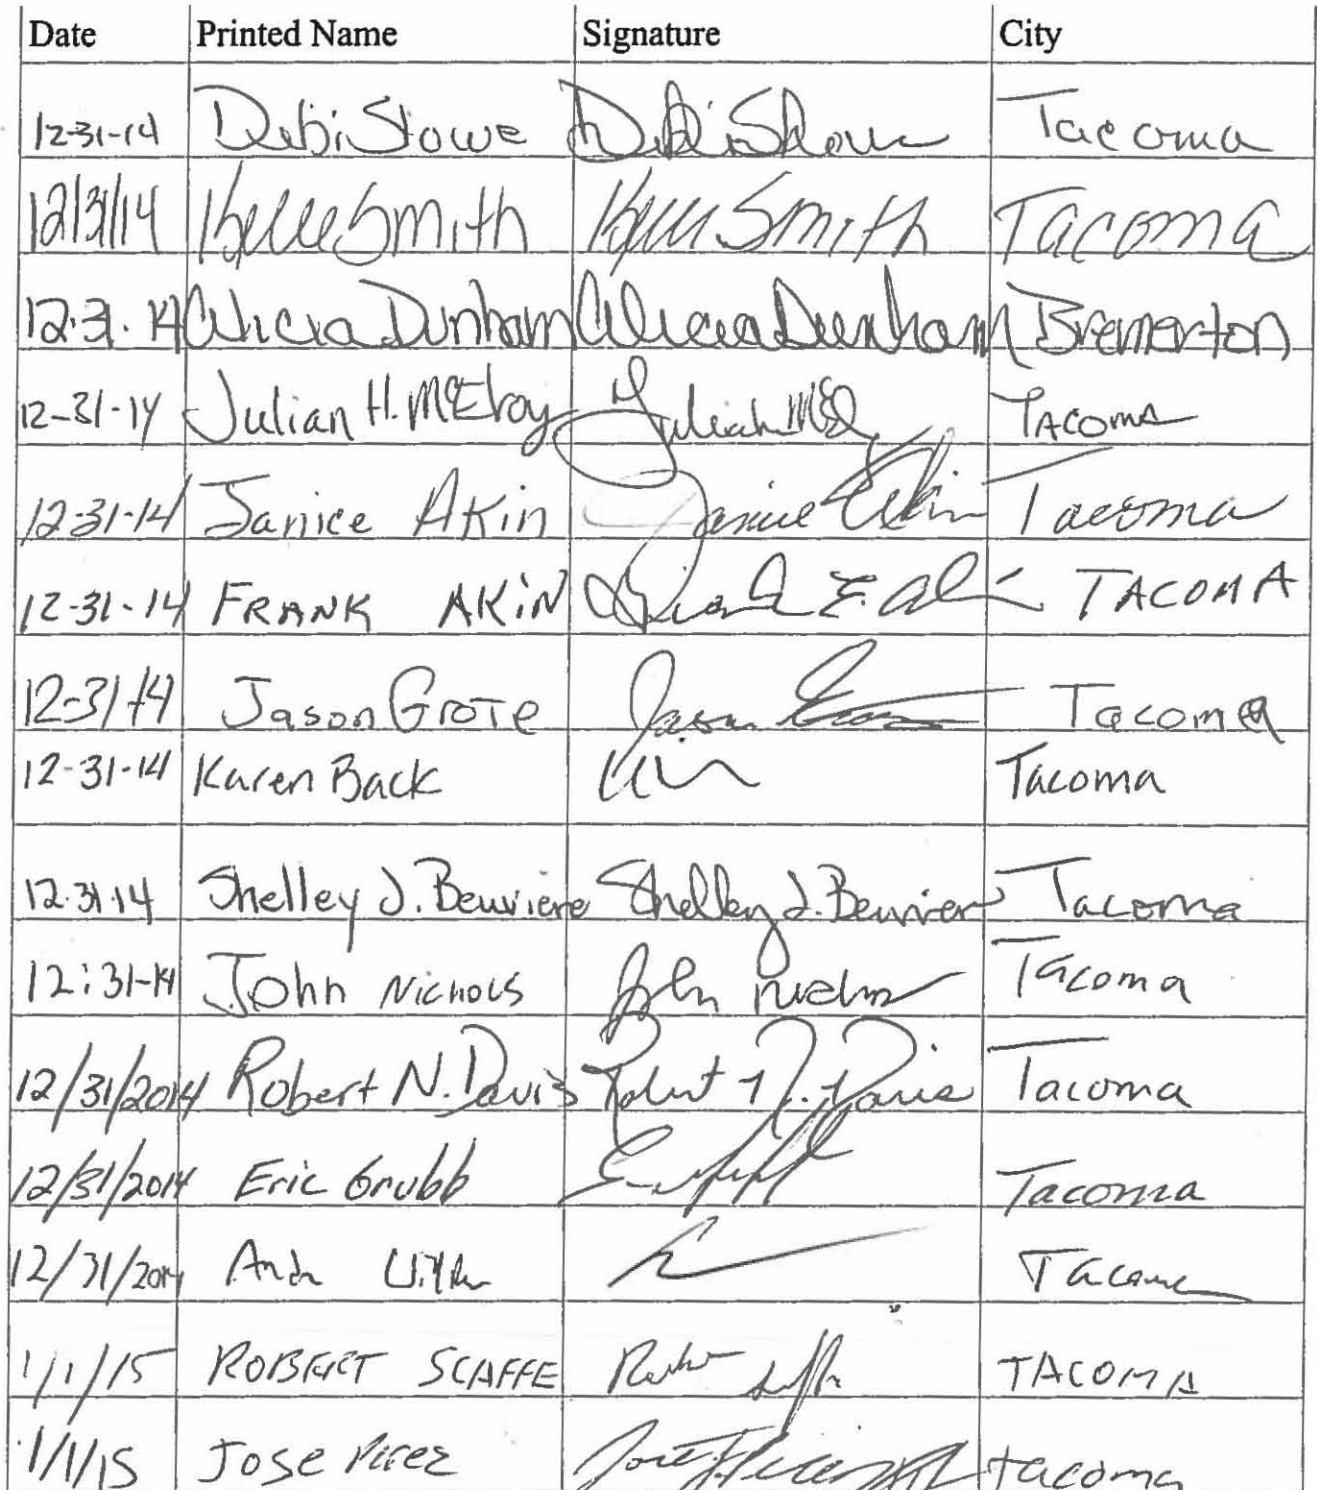 Date Printed Name Signature City
12-31-14 Debi Stowe Debi Stowe Tacoma
12/31/14 Kellie Smith Smith Tacoma
12-31-14 Alicia Dunham Alicia Dunham Bremerton
12-31-14 Julian H. McElroy Julian Tacoma
12-31-14 Janice Akin Janice Akin Tacoma
12-31-14 FRANK AKiN Frank E. TACOMA
12-31-14 Jason Grote Jason Tacoma
12-31-14 Karen Back Tacoma
12.31.14 Shelley J. Beuviere Shelley J. Tacoma
12:31-14 John Nichols John Tacoma
12/31/2014 Robert N. Davis Robert N. Davis Tacoma
12/31/2014 Eric Grubb Tacoma
12/31/2014 Tacoma
1/1/15 ROBERT SCAFFE TACOMA
1/1/15 Jose Perez Jose tacoma